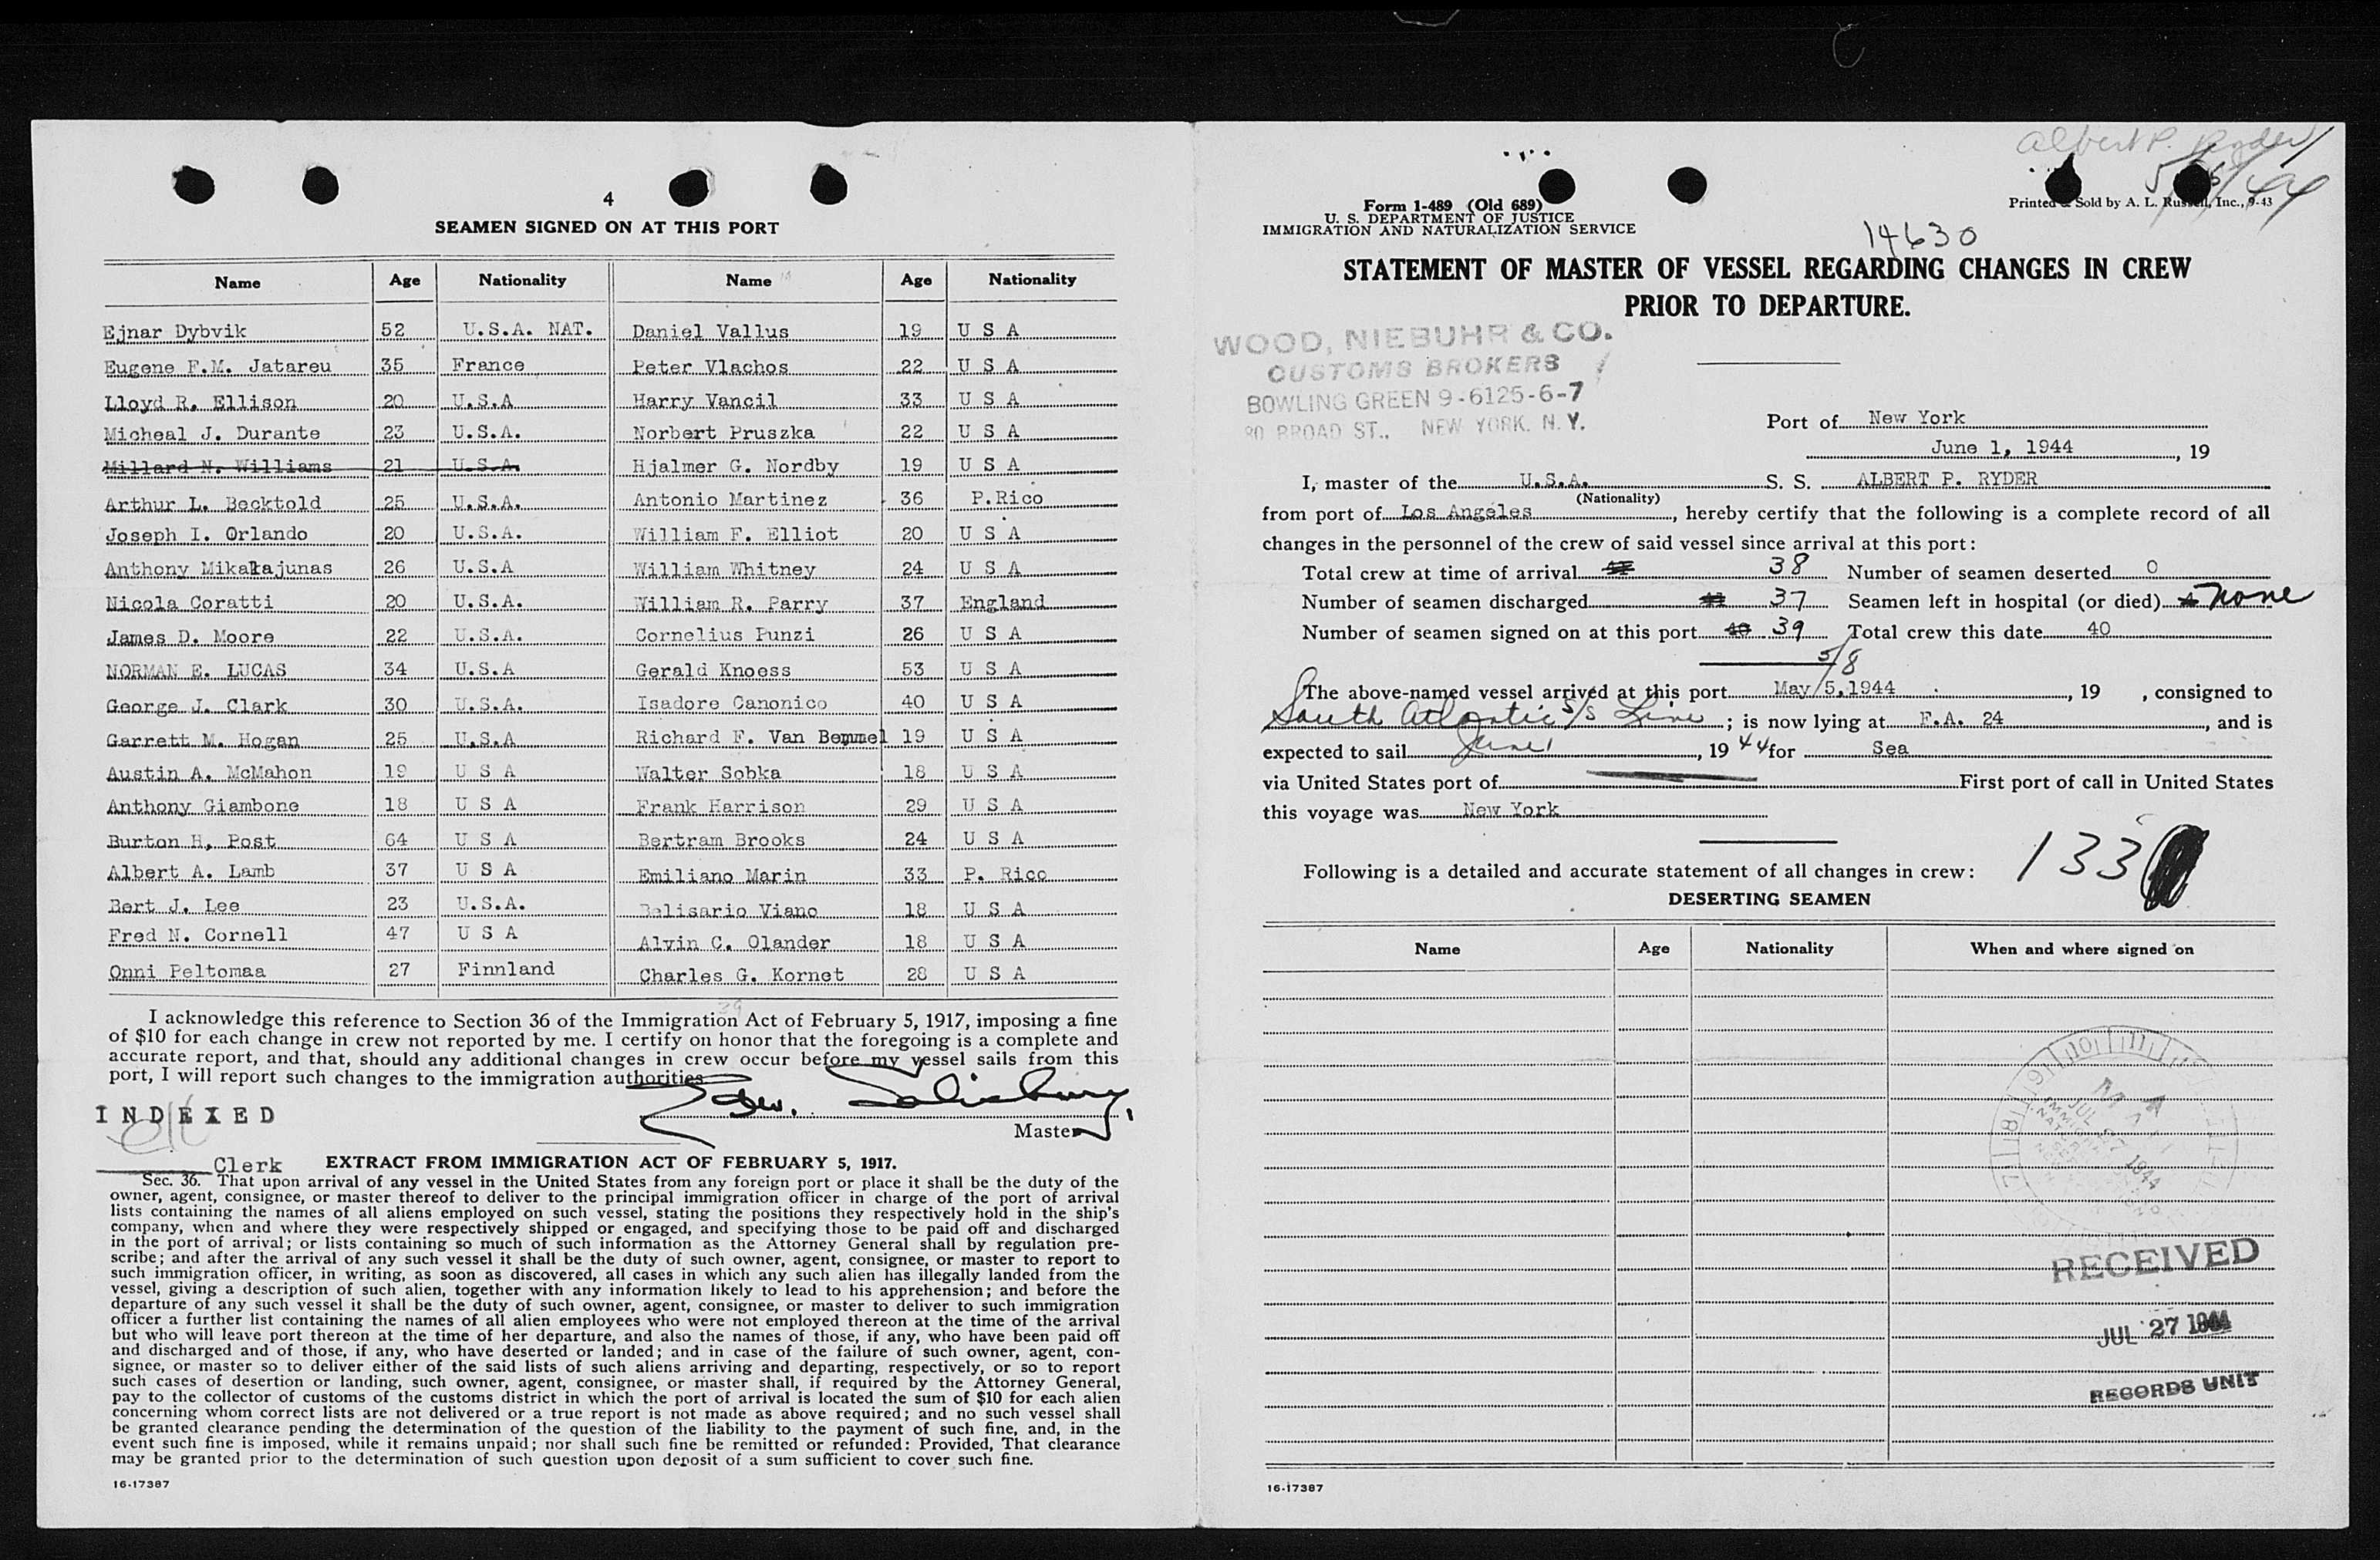 4
SEAMEN SIGNED ON AT THIS PORT
Name Age Nationality Name Age Nationality
Ejnar Dybvik 52 U.S.A. NAT. Daniel Vallus 19 U S A
Eugene F.M. Jatareu 35 France Peter Vlachos 22 U S A
Lloyd R. Ellison 20 U.S.A Harry Vancil 33 U S A
Micheal J. Durante 23 U.S.A. Norbert Pruszka 22 U S A
Millard N. Williams 21 U.S.A. Hjalmer G. Nordby 19 U S A
Arthur L. Becktold 25 U.S.A. Antonio Martinez 36 P.Rico
Joseph I. Orlando 20 U.S.A. William F. Elliot 20 U S A
Anthony Mikalajunas 26 U.S.A William Whitney 24 U S A
Nicola Coratti 20 U.S.A. William R. Parry 37 England
James D. Moore 22 U.S.A. Cornelius Punzi 26 U S A
NORMAN E. LUCAS 34 U.S.A Gerald Knoess 53 U S A
George J. Clark 30 U.S.A. Isadore Canonico 40 U S A
Garrett M. Hogan 25 U.S.A Richard F. Van Bemmel 19 U S A
Austin A. McMahon 19 U S A Walter Sobka 18 U S A
Anthony Giambone 18 U S A Frank Harrison 29 U S A
Burton H. Post 64 U S A Bertram Brooks 24 U S A
Albert A. Lamb 37 U S A Emiliano Marin 33 P. Rico
Bert J. Lee 23 U.S.A. Belisario Viano 18 U S A
Fred N. Cornell 47 U S A Alvin C. Olander 18 U S A
Onni Peltomaa 27 Finnland Charles G. Kornet 28 U S A
39
I acknowledge this reference to Section 36 of the Immigration Act of February 5, 1917, imposing a fine
of $10 for each change in crew not reported by me. I certify on honor that the foregoing is a complete and
accurate report, and that, should any additional changes in crew occur before my vessel sails from this
port, I will report such changes to the immigration authorities.
Edw. Salisbury,
Master
INDEXED
Clerk
EXTRACT FROM IMMIGRATION ACT OF FEBRUARY 5, 1917.
Sec. 36. That upon arrival of any vessel in the United States from any foreign port or place it shall be the duty of the
owner, agent, consignee, or master thereof to deliver to the principal immigration officer in charge of the port of arrival
lists containing the names of all aliens employed on such vessel, stating the positions they respectively hold in the ship's
company, when and where they were respectively shipped or engaged, and specifying those to be paid off and discharged
in the port of arrival; or lists containing so much of such information as the Attorney General shall by regulation pre-
scribe; and after the arrival of any such vessel it shall be the duty of such owner, agent, consignee, or master to report to
such immigration officer, in writing, as soon as discovered, all cases in which any such alien has illegally landed from the
vessel, giving a description of such alien, together with any information likely to lead to his apprehension; and before the
departure of any such vessel it shall be the duty of such owner, agent, consignee, or master to deliver to such immigration
officer a further list containing the names of all alien employees who were not employed thereon at the time of the arrival
but who will leave port thereon at the time of her departure, and also the names of those, if any, who have been paid off
and discharged and of those, if any, who have deserted or landed; and in case of the failure of such owner, agent, con-
signee, or master so to deliver either of the said lists of such aliens arriving and departing, respectively, or so to report
such cases of desertion or landing, such owner, agent, consignee, or master shall, if required by the Attorney General,
pay to the collector of customs of the customs district in which the port of arrival is located the sum of $10 for each alien
concerning whom correct lists are not delivered or a true report is not made as above required; and no such vessel shall
be granted clearance pending the determination of the question of the liability to the payment of such fine, and, in the
event such fine is imposed, while it remains unpaid; nor shall such fine be remitted or refunded: Provided, That clearance
may be granted prior to the determination of such question upon deposit of a sum sufficient to cover such fine.
16-17387
Albert P. Ryder
Form 1-489 (Old 689)
U. S. DEPARTMENT OF JUSTICE
IMMIGRATION AND NATURALIZATION SERVICE
Printed & Sold by A. L. Russell, Inc., 9-43
14630
STATEMENT OF MASTER OF VESSEL REGARDING CHANGES IN CREW
PRIOR TO DEPARTURE.
WOOD, NIEBUHR & CO.
CUSTOMS BROKERS
BOWLING GREEN 9-6125-6-7
80 BROAD ST., NEW YORK, N. Y.
Port of New York
June 1, 1944, 19
I, master of the U.S.A. S. S. ALBERT P. RYDER
(Nationality)
from port of Los Angeles, hereby certify that the following is a complete record of all
changes in the personnel of the crew of said vessel since arrival at this port:
Total crew at time of arrival 38 Number of seamen deserted 0
Number of seamen discharged 37 Seamen left in hospital (or died) none
Number of seamen signed on at this port 40 39 Total crew this date 40
5/8
The above-named vessel arrived at this port May 5, 1944, 19 , consigned to
South Atlantic S/S Line; is now lying at F.A. 24, and is
expected to sail June 1, 1944 for Sea
via United States port of First port of call in United States
this voyage was New York
133
Following is a detailed and accurate statement of all changes in crew:
DESERTING SEAMEN
Name Age Nationality When and where signed on
JUL 27 1944
RECEIVED
JUL 27 1944
RECORDS UNIT
16-17387